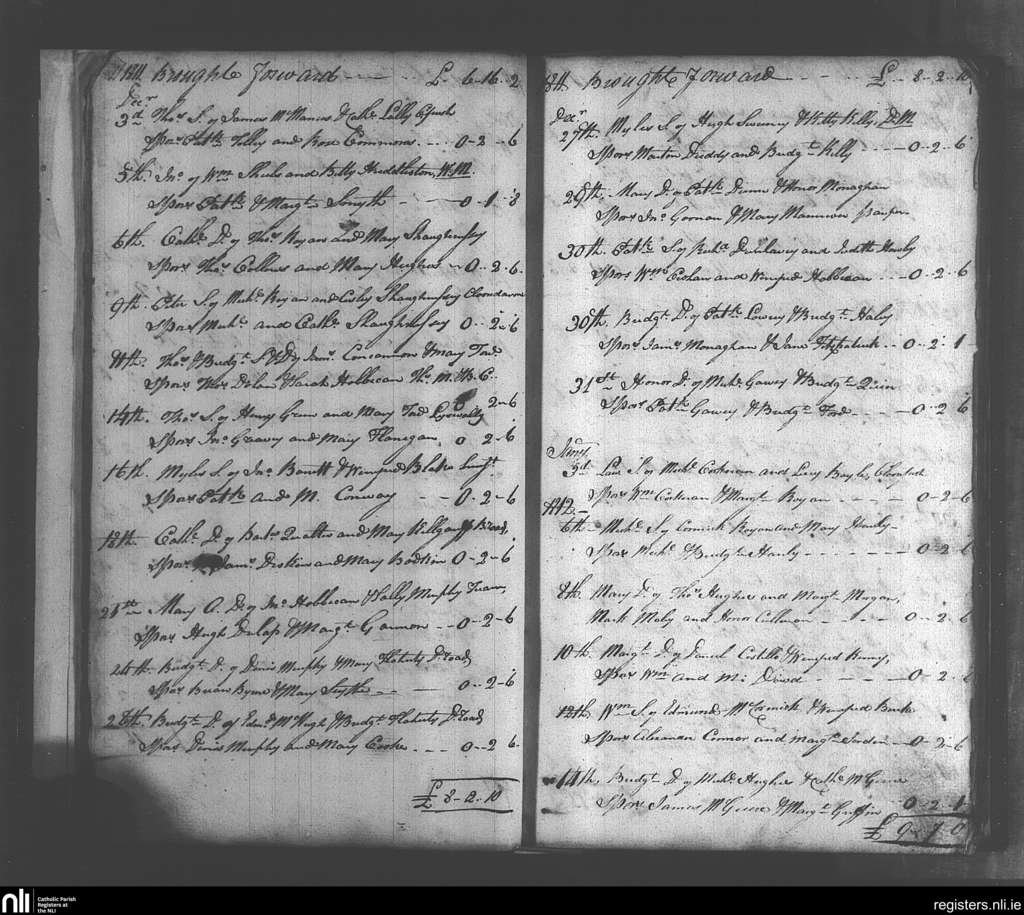 1811 Brought Forward £ 6-16-2
Decr
3d Thos S. of James McManus & Cathe Lally
Spors Patk Tilly and Rose Commons 0-2-6
5th. Jno. of Wm Shiels and Betty Huddleston, W.M.
Spors Patk & Margt Smyth 0-1-8
6th. Cathe. Dr. of Thos Ryan and Mary Shaughnessy
Spors Thos Cullinan and Mary Hughes 0-2-6
9th. Peter S. of Michl Ryan and Cicily Shaughnessy
Spors Michl. and Cathe. Shaughnessy 0-2-6
11th. Thos & Budgt S & Dr of Concannon & Mary Ford
Spors Thos Dolan & Sarah Hobbican
14th. Thos. S. of Henry Green and Mary Ford 2-6
Spors Jno Greavy and Mary Flanegan 0 2-6
16th. Myles S. of Jno. Barrett & Winifred Blake
Spors Patk and M. Conway 0-2-6
18th. Cathe. D. of and Mary Killgariff
Spors Erskine and Mary Bodkin 0-2-6
21st Mary D. of Jno. Hobbican & Sally Murphy Tuam,
Spors Hugh Dunlap & Margt. Gannon 0-2-6
24th. Budgt. D. of Denis Murphy & Mary Flaherty D. road
Spors Brian Byrne & Mary Smythe 0-2-6
26th. Budgt. D. of Edmd McHugh & Budgt. Flaherty D. road
Spors Denis Murphy and Mary Cooke 0-2-6
£ 8-2-10
1811 Brought Forward £ 8-2-10
Decr
27th. Myles S. of Hugh Sweeney & Kitty Kelly, D.M.
Spors Martin Diddy and Budgt Kelly 0-2-6
29th. Mary D. of Patk. Dunne & Honor Monaghan
Spors Jno. Gorman & Mary pauper
30th. Patk S. of Richd. Dulavey and Judith Hanly
Spors Wm. and Winifred Hobbican 0-2-6
30th. Budgt. D. of Patk Lowry & Budgt. Haly
Spors James Monaghan & Jane Fitzpatrick 0-2-1
31st Honor D. of Michl. Gavey & Budgt Quin
Spors Patk Gavey & Budgt. Ford 0-2-6
Jany
3d Law. S. of Michl. Corkeran and Lucy Boyle,
Spors Wm Corkeran & Margt Ryan 0-2-6
1812
6th Michl. S. of Cormick Ryan and Mary Hanly
Spors Michl. & Budgt Hanly 0-2-6
8th Mary D. of Thos Hughes and Margt Morgan,
Mark Maly and Honor Cullinan 0-2-6
10th. Margt D. of Daniel Costello & Winifred Burny,
Spors Wm and M. 0-2-6
12th. Wm S. of Edmund McCormick & Winifred Burke
Spors Alexander Connor and Margt 0-2-6
14th, Budgt D. of Michl. Hughes & Cathe McGuire
Spors James McGuire & Margt Griffin 0-2-1
£ 9-7-0
nli
Catholic Parish
Registers at
the NLI
registers.nli.ie